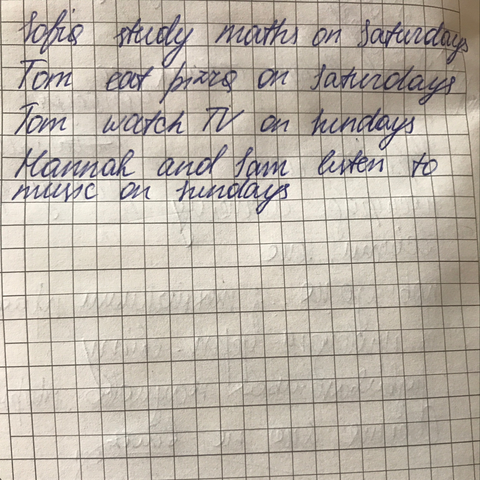 Sofia study maths on Saturdays
Tom eat pizza on Saturdays
Tom watch TV on sundays
Hannah and Sam listen to
music on sundays